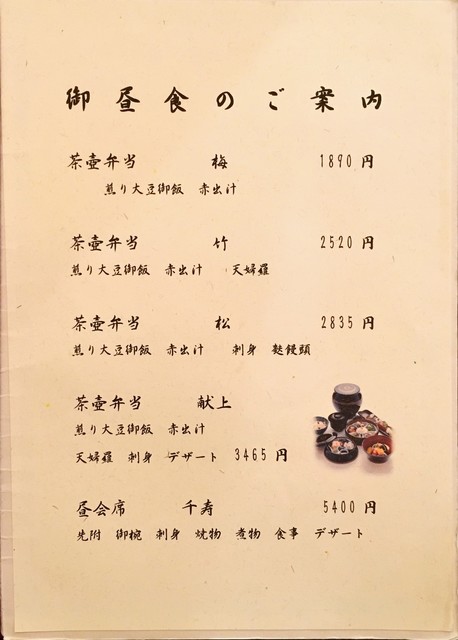 御昼食のご案内
茶壷弁当 梅 1890円
煎り大豆御飯 赤出汁
茶壷弁当 竹 2520円
煎り大豆御飯 赤出汁 天婦羅
茶壷弁当 松 2835円
煎り大豆御飯 赤出汁 刺身 麩饅頭
茶壷弁当 献上
煎り大豆御飯 赤出汁
天婦羅 刺身 デザート 3465円
昼会席 千寿 5400円
先附 御椀 刺身 焼物 煮物 食事 デザート